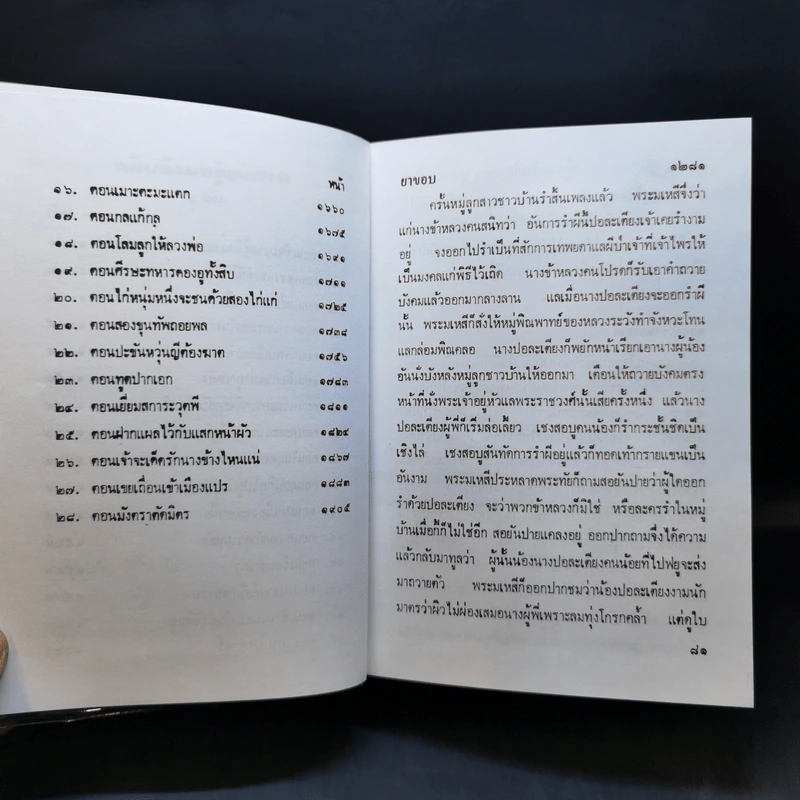 หน้า
๑๖. ตอนเมาะตะมะแตก ๑๖๖๐
๑๗. ตอนกลแก้กุล ๑๖๗๕
๑๘. ตอนโลมลูกให้ลวงพ่อ ๑๖๙๑
๑๙. ตอนศีรษะทหารตองอูทั้งสิบ ๑๗๑๑
๒๐. ตอนไก่หนุ่มหนึ่งจะชนด้วยสองไก่แก่ ๑๗๒๕
๒๑. ตอนสองขุนทัพถอยพล ๑๗๓๘
๒๒. ตอนปะขันหวุ่นญีต้องฆาต ๑๗๕๖
๒๓. ตอนทูตปากเอก ๑๗๘๓
๒๔. ตอนเยี่ยมสการะวุตพี ๑๘๑๑
๒๕. ตอนฝากแผลไว้กับแสกหน้าผัว ๑๘๒๔
๒๖. ตอนเจ้าจะเด็ดรักนางข้างไหนแน่ ๑๘๖๗
๒๗. ตอนเขยเถื่อนเข้าเมืองแปร ๑๘๘๓
๒๘. ตอนมังตราตัดมิตร ๑๙๐๕
ยาขอบ ๑๒๘๑
ครั้นหมู่ลูกสาวชาวบ้านรำสิ้นเพลงแล้ว พระมเหสีจึ่งว่า
แก่นางข้าหลวงคนสนิทว่า อันการรำผีนี้ปอละเตียงเจ้าเคยรำงาม
อยู่ จงออกไปรำเป็นที่สักการเทพยดาแลผีป่าเจ้าที่เจ้าไพรให้
เป็นมงคลแก่พิธีไว้เถิด นางข้าหลวงคนโปรดก็รับเอาคำถวาย
บังคมแล้วออกมากลางลาน แลเมื่อนางปอละเตียงจะออกรำผี
นั้น พระมเหสีก็สั่งให้หมู่พิณพาทย์ของหลวงระวังทำจังหวะโทน
แลกล่อมพิณคลอ นางปอละเตียงก็พยักหน้าเรียกเอานางผู้น้อง
อันนั่งบังหลังหมู่ลูกชาวบ้านให้ออกมา เตือนให้ถวายบังคมตรง
หน้าที่นั่งพระเจ้าอยู่หัวแลพระราชวงศ์นั้นเสียครั้งหนึ่ง แล้วนาง
ปอละเตียงผู้พี่ก็เริ่มล่อเลี้ยว เชงสอบูคนน้องก็รำกระชั้นชิดเป็น
เชิงไล่ เชงสอบูสันทัดการรำผีอยู่แล้วก็ทอดเท้ากรายแขนเป็น
อันงาม พระมเหสีประหลาดพระทัยก็ถามสอยันปายว่าผู้ใดออก
รำด้วยปอละเตียง จะว่าพวกข้าหลวงก็มิใช่ หรือละครรำในหมู่
บ้านเมื่อกี้ก็ไม่ใช่อีก สอยันปายแคลงอยู่ ออกปากถามจึ่งได้ความ
แล้วกลับมาทูลว่า ผู้นั้นน้องนางปอละเตียงคนน้อยที่ไปฟยูจะส่ง
มาถวายตัว พระมเหสีก็ออกปากชมว่าน้องปอละเตียงงามนัก
มาตรว่าผิวไม่ผ่องเสมอนางผู้พี่เพราะลมทุ่งโกรกคล้ำ แต่ดูใบ
๘๑